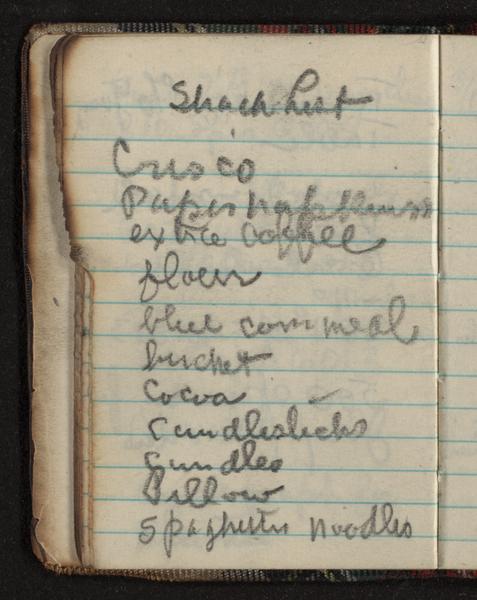 Shack List
Crisco
Paper napkins
extra Coffee
flour
blue corn meal
bucket
Cocoa
Candlesticks
Candles
Pillow
Spaghetti noodles